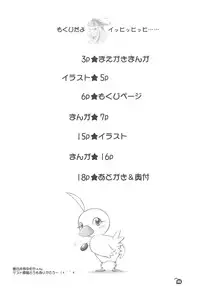 もくじだよ イッヒッヒッヒ……
3p★まえがきまんが
イラスト★5p
6p★もくじページ
まんが★7p
15p★イラスト
まんが★16p
18p★あとがき&奥付